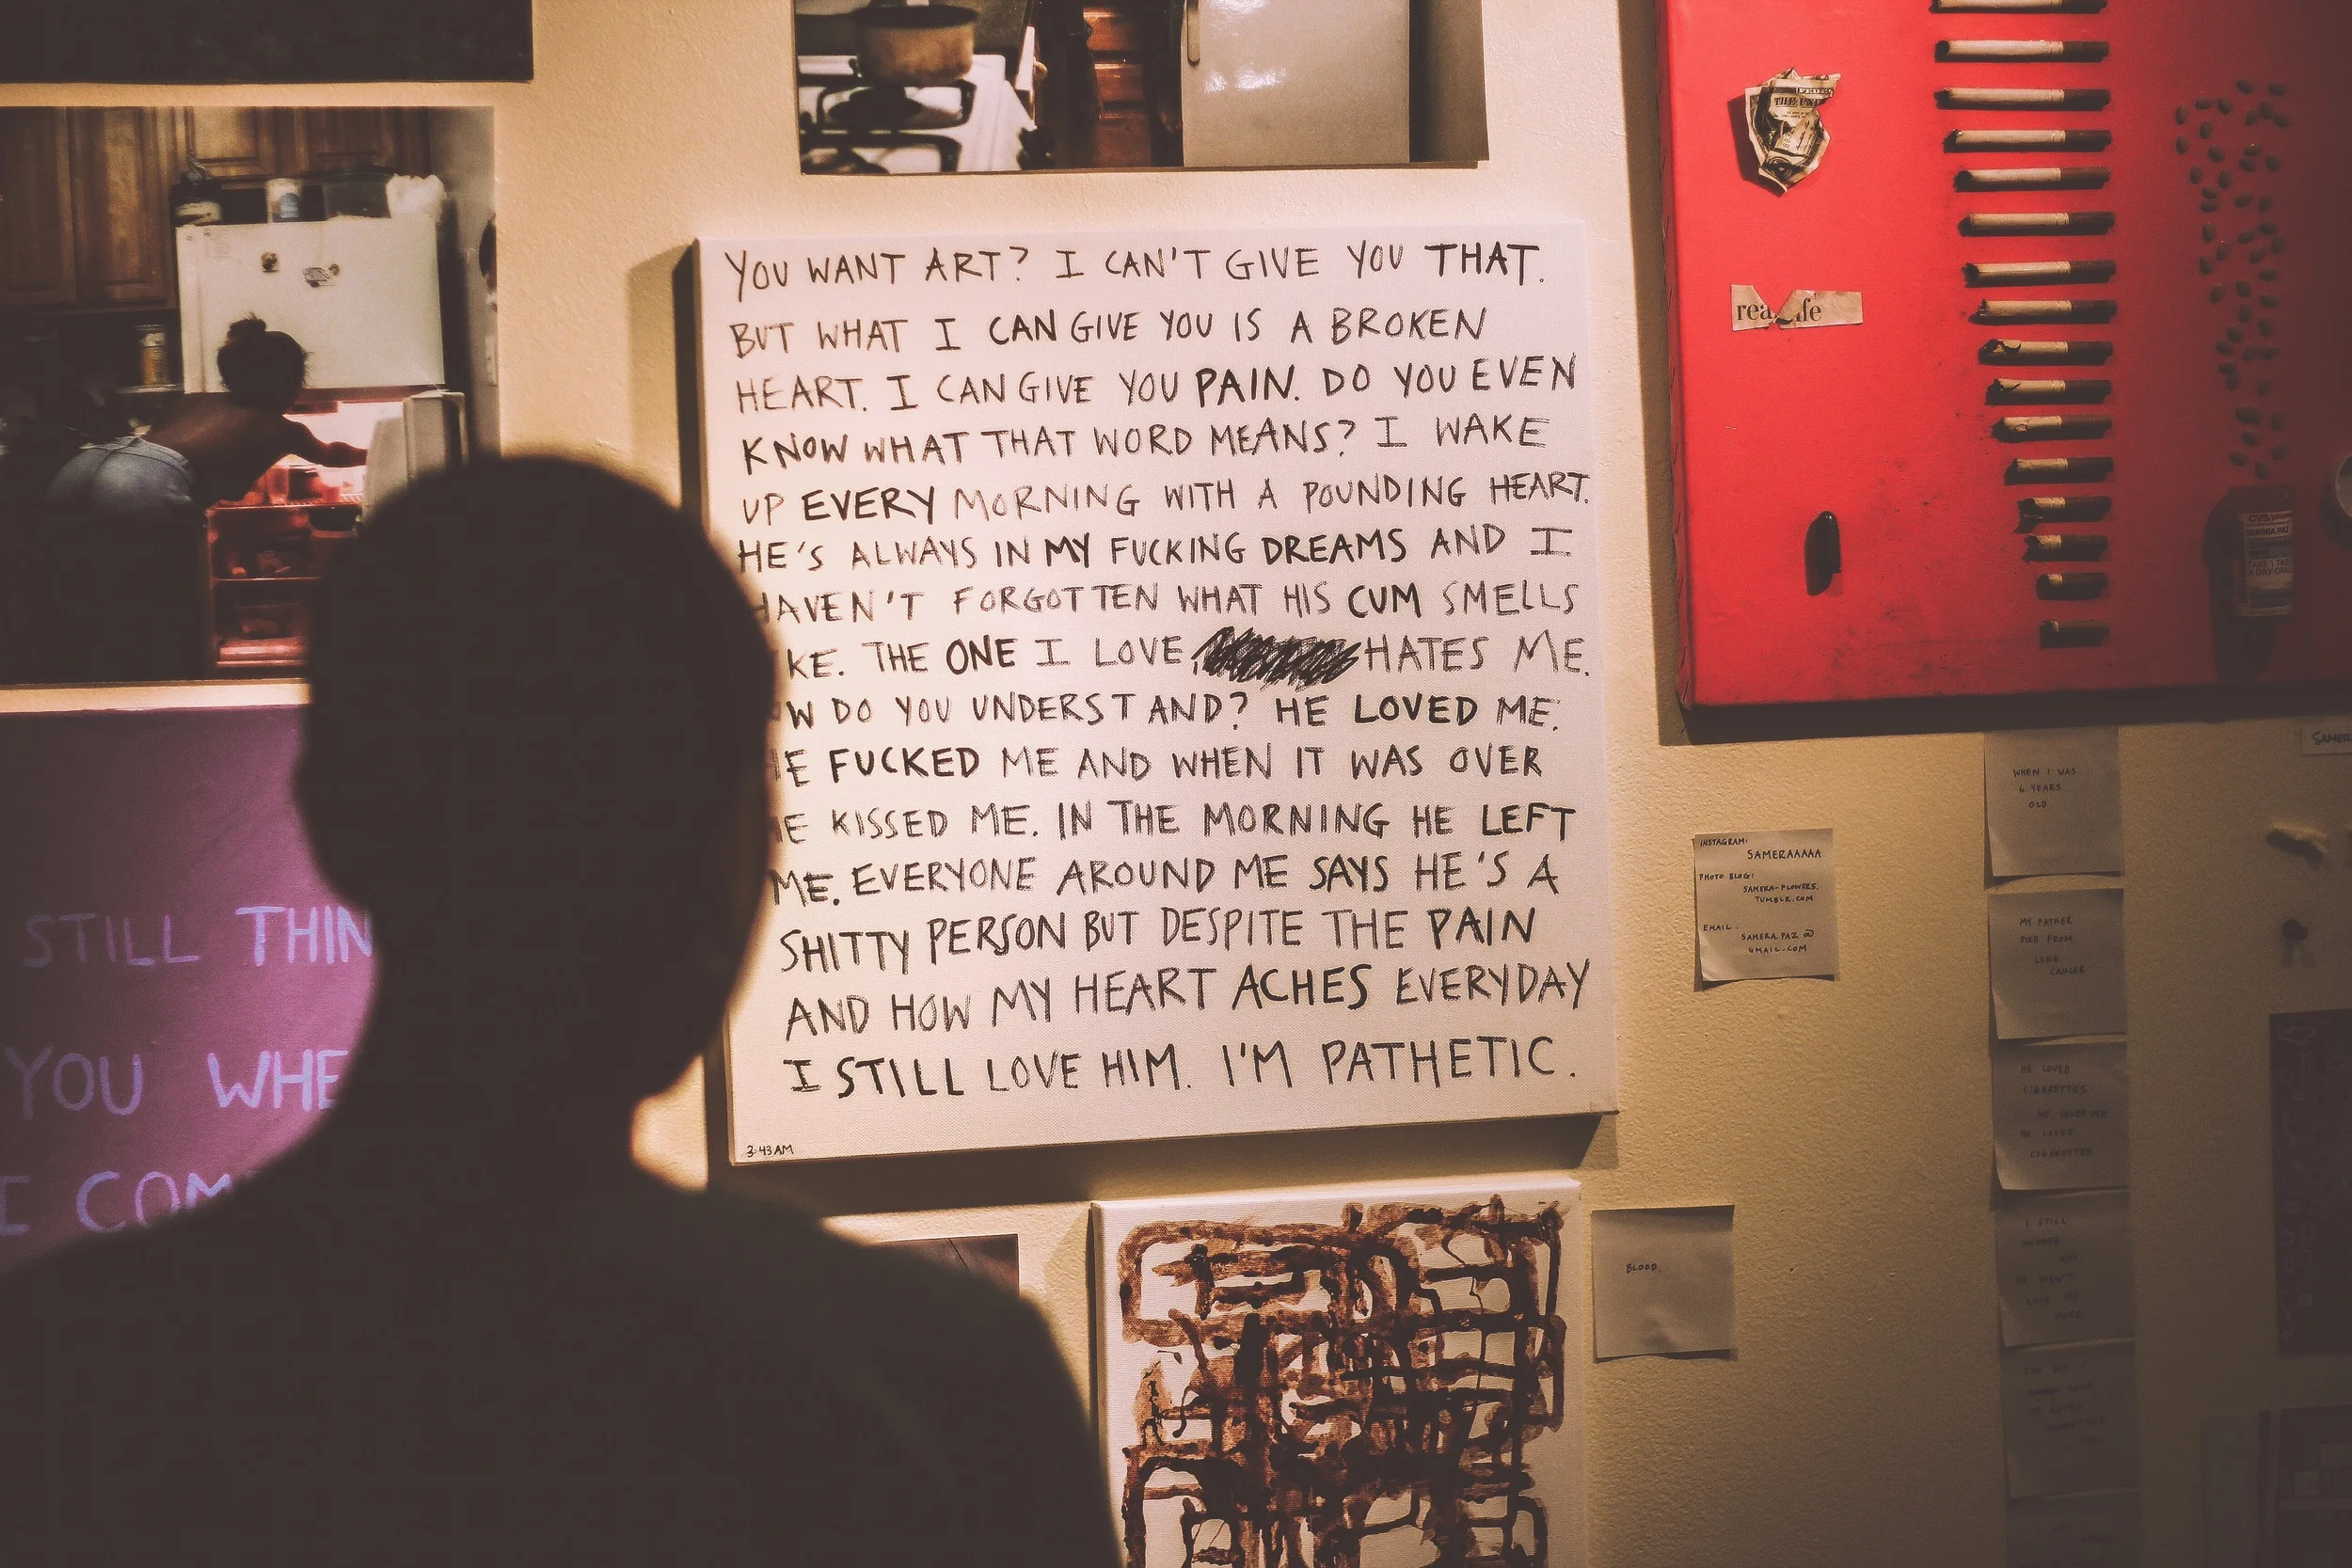 YOU WANT ART? I CAN'T GIVE YOU THAT.
BUT WHAT I CAN GIVE YOU IS A BROKEN
HEART. I CAN GIVE YOU PAIN. DO YOU EVEN
KNOW WHAT THAT WORD MEANS? I WAKE
UP EVERY MORNING WITH A POUNDING HEART.
HE'S ALWAYS IN MY FUCKING DREAMS AND I
HAVEN'T FORGOTTEN WHAT HIS CUM SMELLS
KE. THE ONE I LOVE HATES ME.
OW DO YOU UNDERSTAND? HE LOVED ME.
HE FUCKED ME AND WHEN IT WAS OVER
HE KISSED ME. IN THE MORNING HE LEFT
ME. EVERYONE AROUND ME SAYS HE'S A
SHITTY PERSON BUT DESPITE THE PAIN
AND HOW MY HEART ACHES EVERYDAY
I STILL LOVE HIM. I'M PATHETIC.
3:43AM
STILL THIN
YOU WHE
I COM
THE UN
rea ife
INSTAGRAM:
SAMERAAAAA
PHOTO BLOG:
SAMERA-FLOWERS.
TUMBLR.COM
EMAIL:
SAMERA.PAZ@
GMAIL.COM
WHEN I WAS
6 YEARS
OLD
MY FATHER
DIED FROM
LUNG
CANCER
HE LOVED
CIGARETTES.
HE LOVED ME
HE LOVED
CIGARETTES
I STILL
LOVE ME
BLOOD.